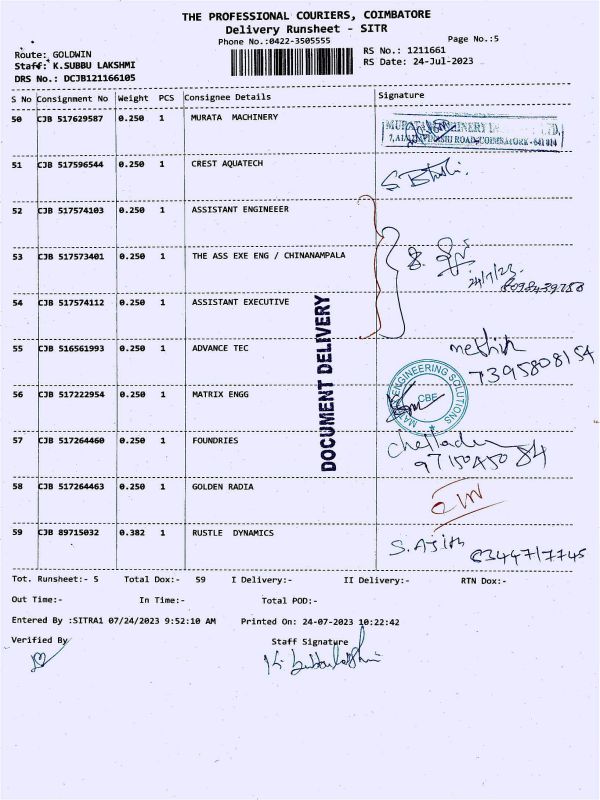 THE PROFESSIONAL COURIERS, COIMBATORE
Delivery Runsheet - SITR
Phone No.:0422-3505555
Page No.:5
Route: GOLDWIN
RS No.: 1211661
Staff: K.SUBBU LAKSHMI
RS Date: 24-Jul-2023
DRS No.: DCJB121166105
S No Consignment No Weight PCS Consignee Details Signature
50 CJB 517629587 0.250 1 MURATA MACHINERY
51 CJB 517596544 0.250 1 CREST AQUATECH
52 CJB 517574103 0.250 1 ASSISTANT ENGINEEER
53 CJB 517573401 0.250 1 THE ASS EXE ENG / CHINANAMPALA
24/7/23
54 CJB 517574112 0.250 1 ASSISTANT EXECUTIVE
DOCUMENT DELIVERY
55 CJB 516561993 0.250 1 ADVANCE TEC
7395808154
56 CJB 517222954 0.250 1 MATRIX ENGG
ENGINEERING SOLUTIONS
CBE
57 CJB 517264460 0.250 1 FOUNDRIES
58 CJB 517264463 0.250 1 GOLDEN RADIA
59 CJB 89715032 0.382 1 RUSTLE DYNAMICS
S. Ajith
Tot. Runsheet:- 5 Total Dox:- 59 I Delivery:- II Delivery:- RTN Dox:-
Out Time:- In Time:- Total POD:-
Entered By :SITRA1 07/24/2023 9:52:10 AM Printed On: 24-07-2023 10:22:42
Verified By Staff Signature